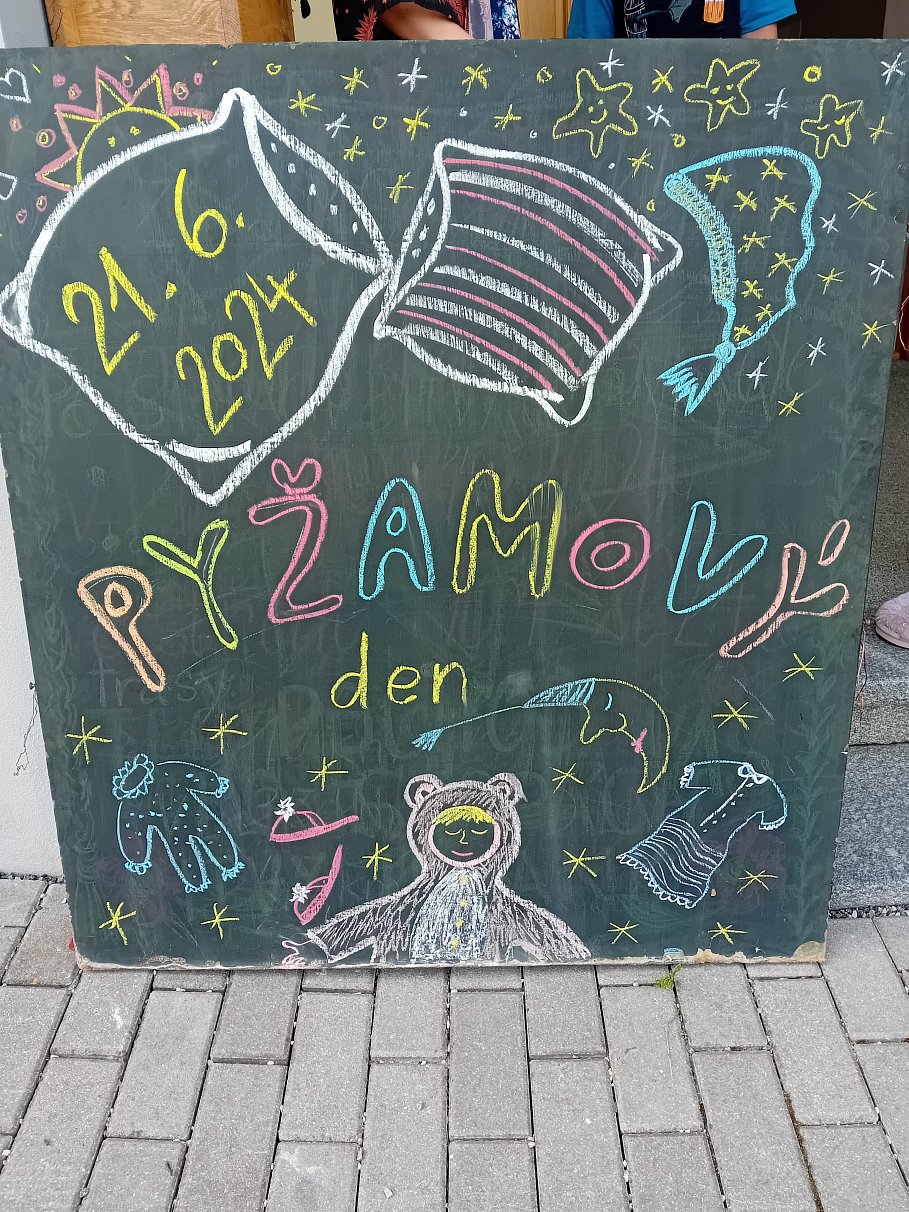 21. 6.
2024
PYŽAMOVÝ
den